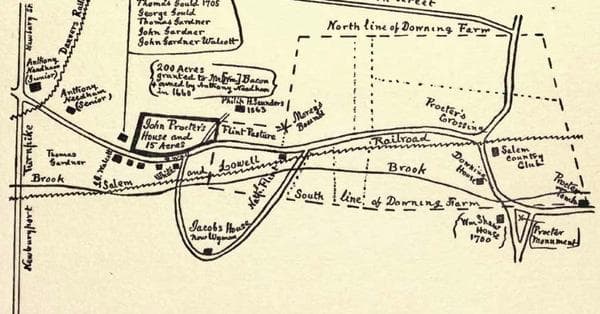 Street
Thomas Gould 1705
George Gould
Thomas Gardner
John Gardner
John Gardner Walcott
North line of Downing Farm
Newbury St
Danvers Rail
Anthony
Needham
(Junior)
Anthony
Needham
(Senior)
200 Acres
granted to Mr. [Wm] Bacon
owned by Anthony Needham
in 1660
Philip H. Saunders
1863
John Procter's
House and
15 Acres
Flint Pasture
Procter's
Crossing
Railroad
Turnpike
Thomas
Gardner
and Lowell
Brook
Salem
Brook
Downing
House
Salem
Country
Club
South line of Downing Farm
Jacobs House
Now Wyman
Wm Shaw
House
1700
Procter
Monument
Newburyport